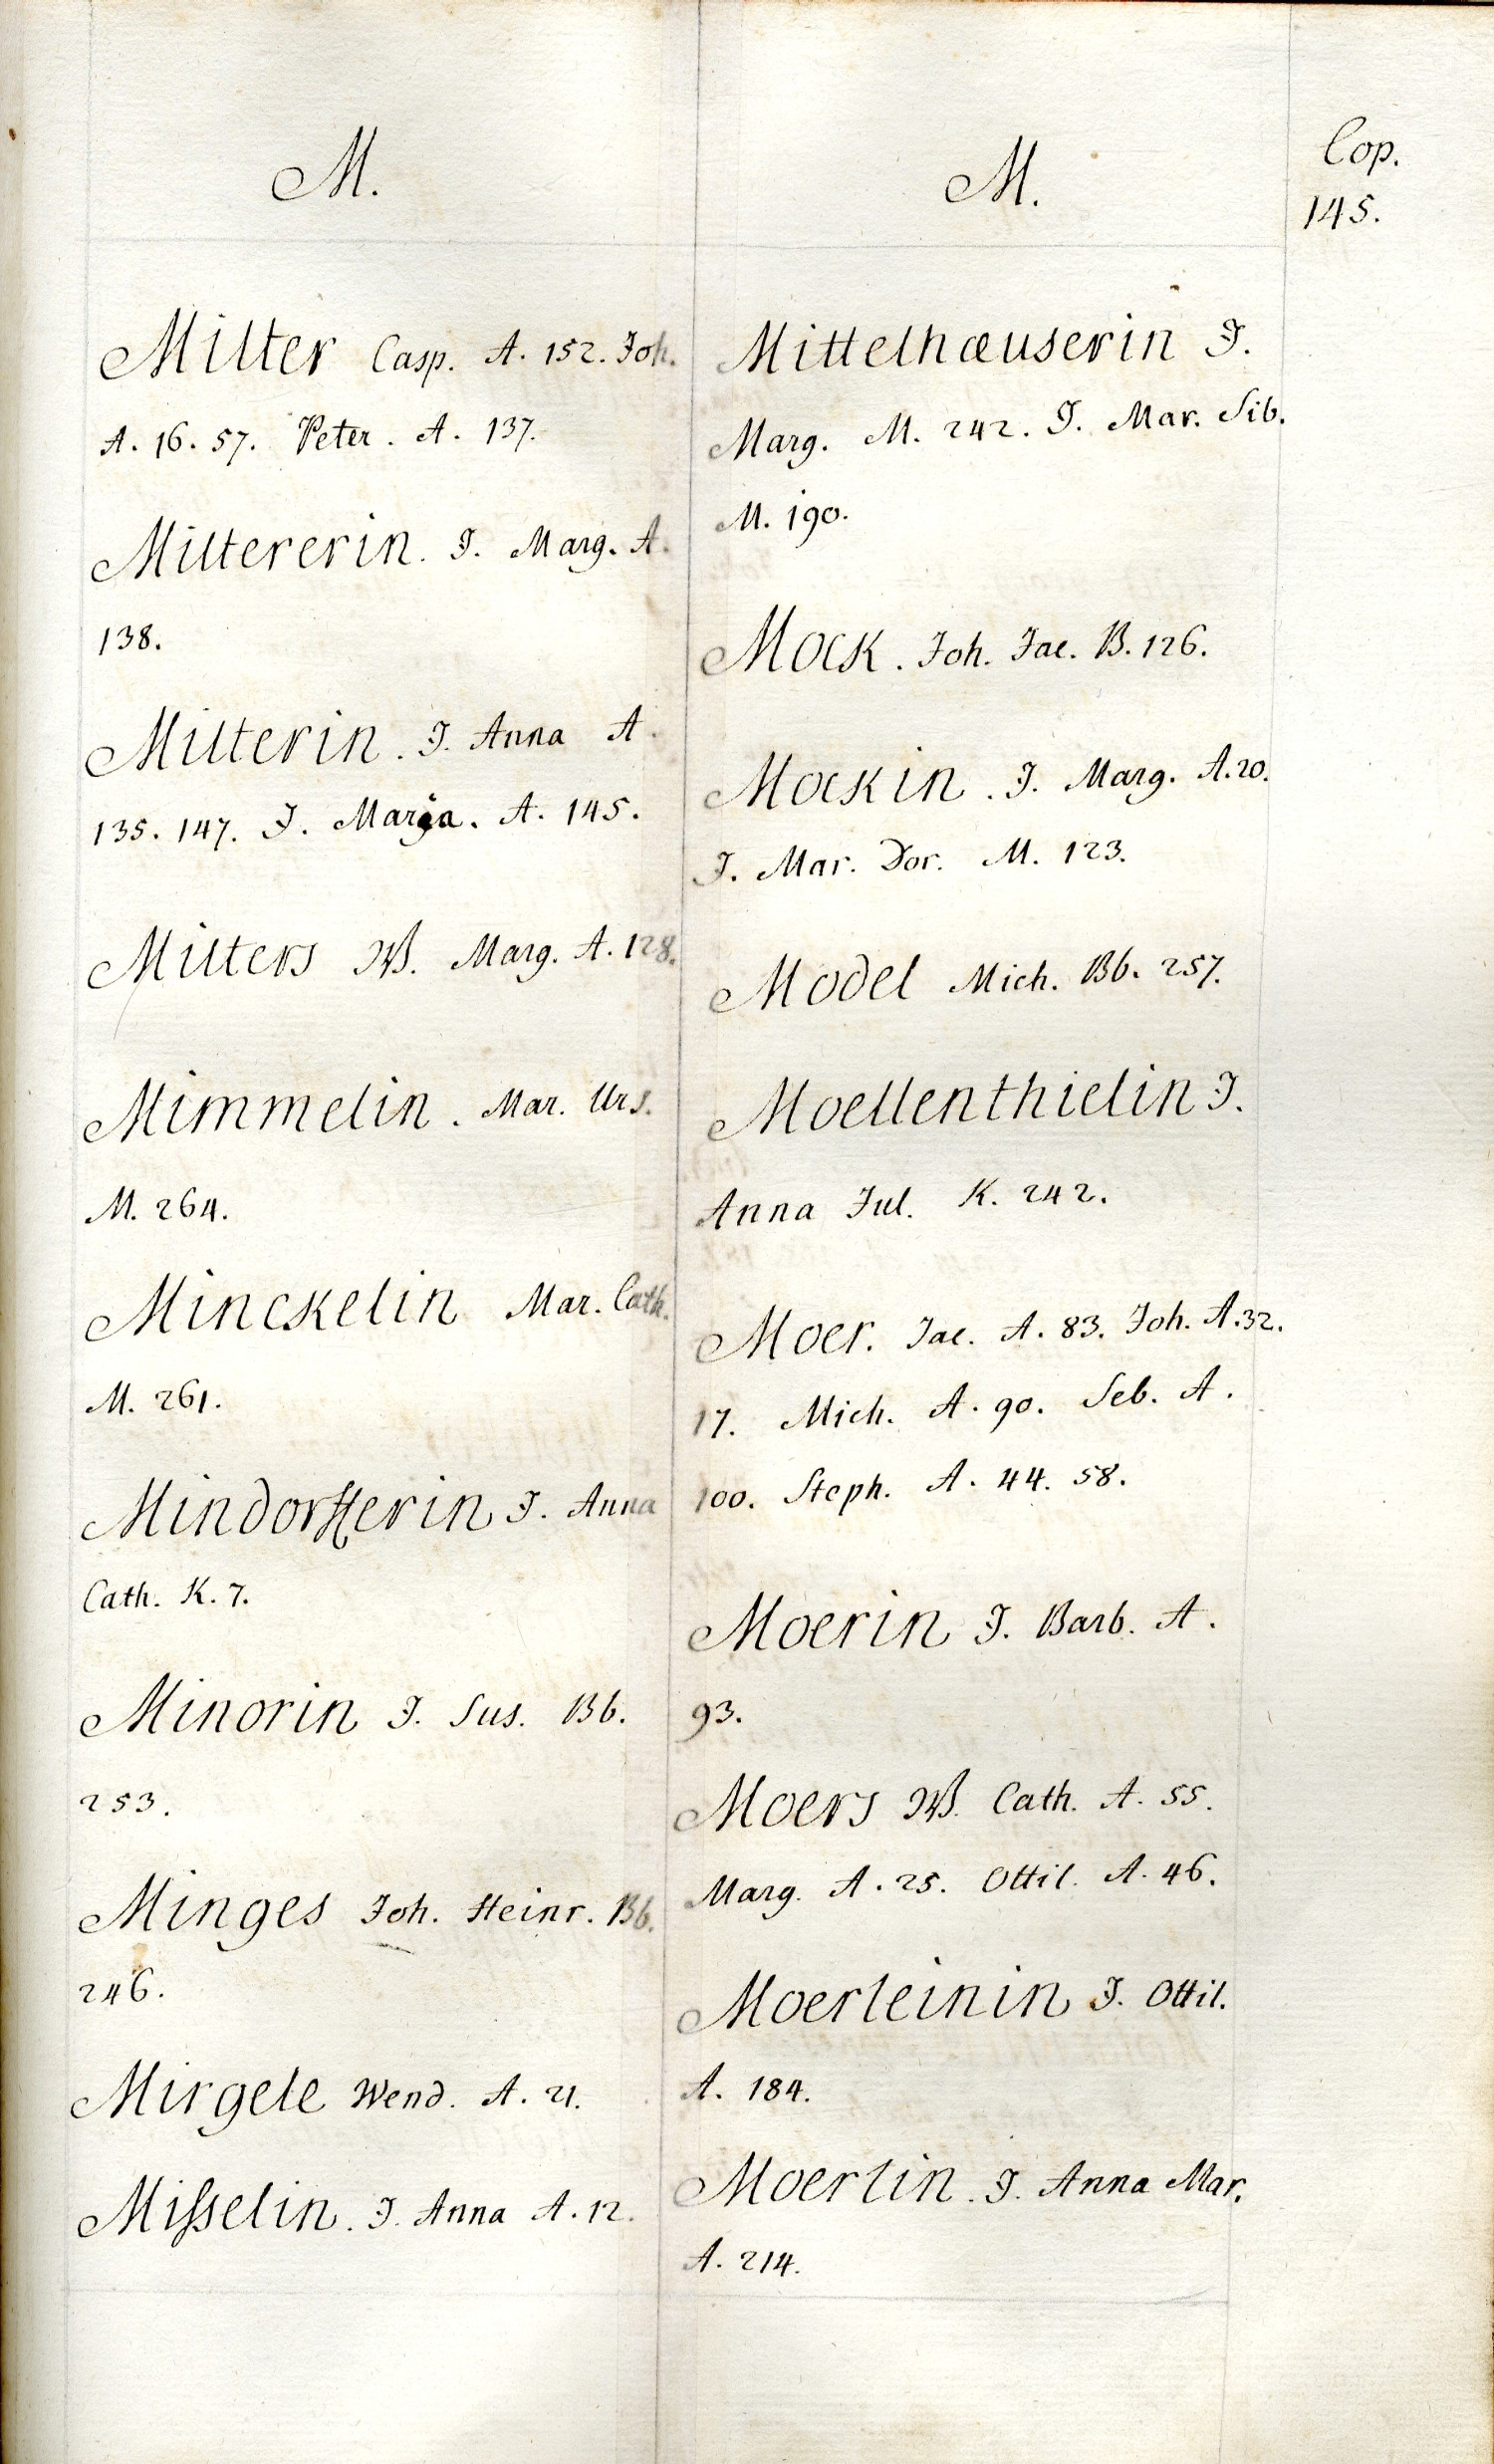 M.
Milter Casp. A. 152. Joh.
A. 16. 57. Peter. A. 137.
Miltererin. J. Marg. A.
138.
Milterin. J. Anna A.
135. 147. J. Maria. A. 145.
Milters W. Marg. A. 128.
Mimmelin. Mar. Urs.
M. 264.
Minckelin Mar. Cath.
M. 261.
Mindorfferin J. Anna
Cath. K. 7.
Minorin J. Sus. Bb.
253.
Minges Joh. Heinr. Bb.
246.
Mirgele Wend. A. 21.
Misselin. J. Anna A. 12.
M.
Mittelhæuserin J.
Marg. M. 242. J. Mar. Sib.
M. 190.
Mock. Joh. Jac. B. 126.
Mockin. J. Marg. A. 20.
J. Mar. Dor. M. 123.
Model Mich. Bb. 257.
Moellenthielin J.
Anna Jul. K. 242.
Moer. Jac. A. 83. Joh. A. 32.
17. Mich. A. 90. Seb. A.
100. Steph. A. 44. 58.
Moerin J. Barb. A.
93.
Moers W. Cath. A. 55.
Marg. A. 25. Ottil. A. 46.
Moerleinin J. Ottil.
A. 184.
Moerlin. J. Anna Mar.
A. 214.
Cop.
145.